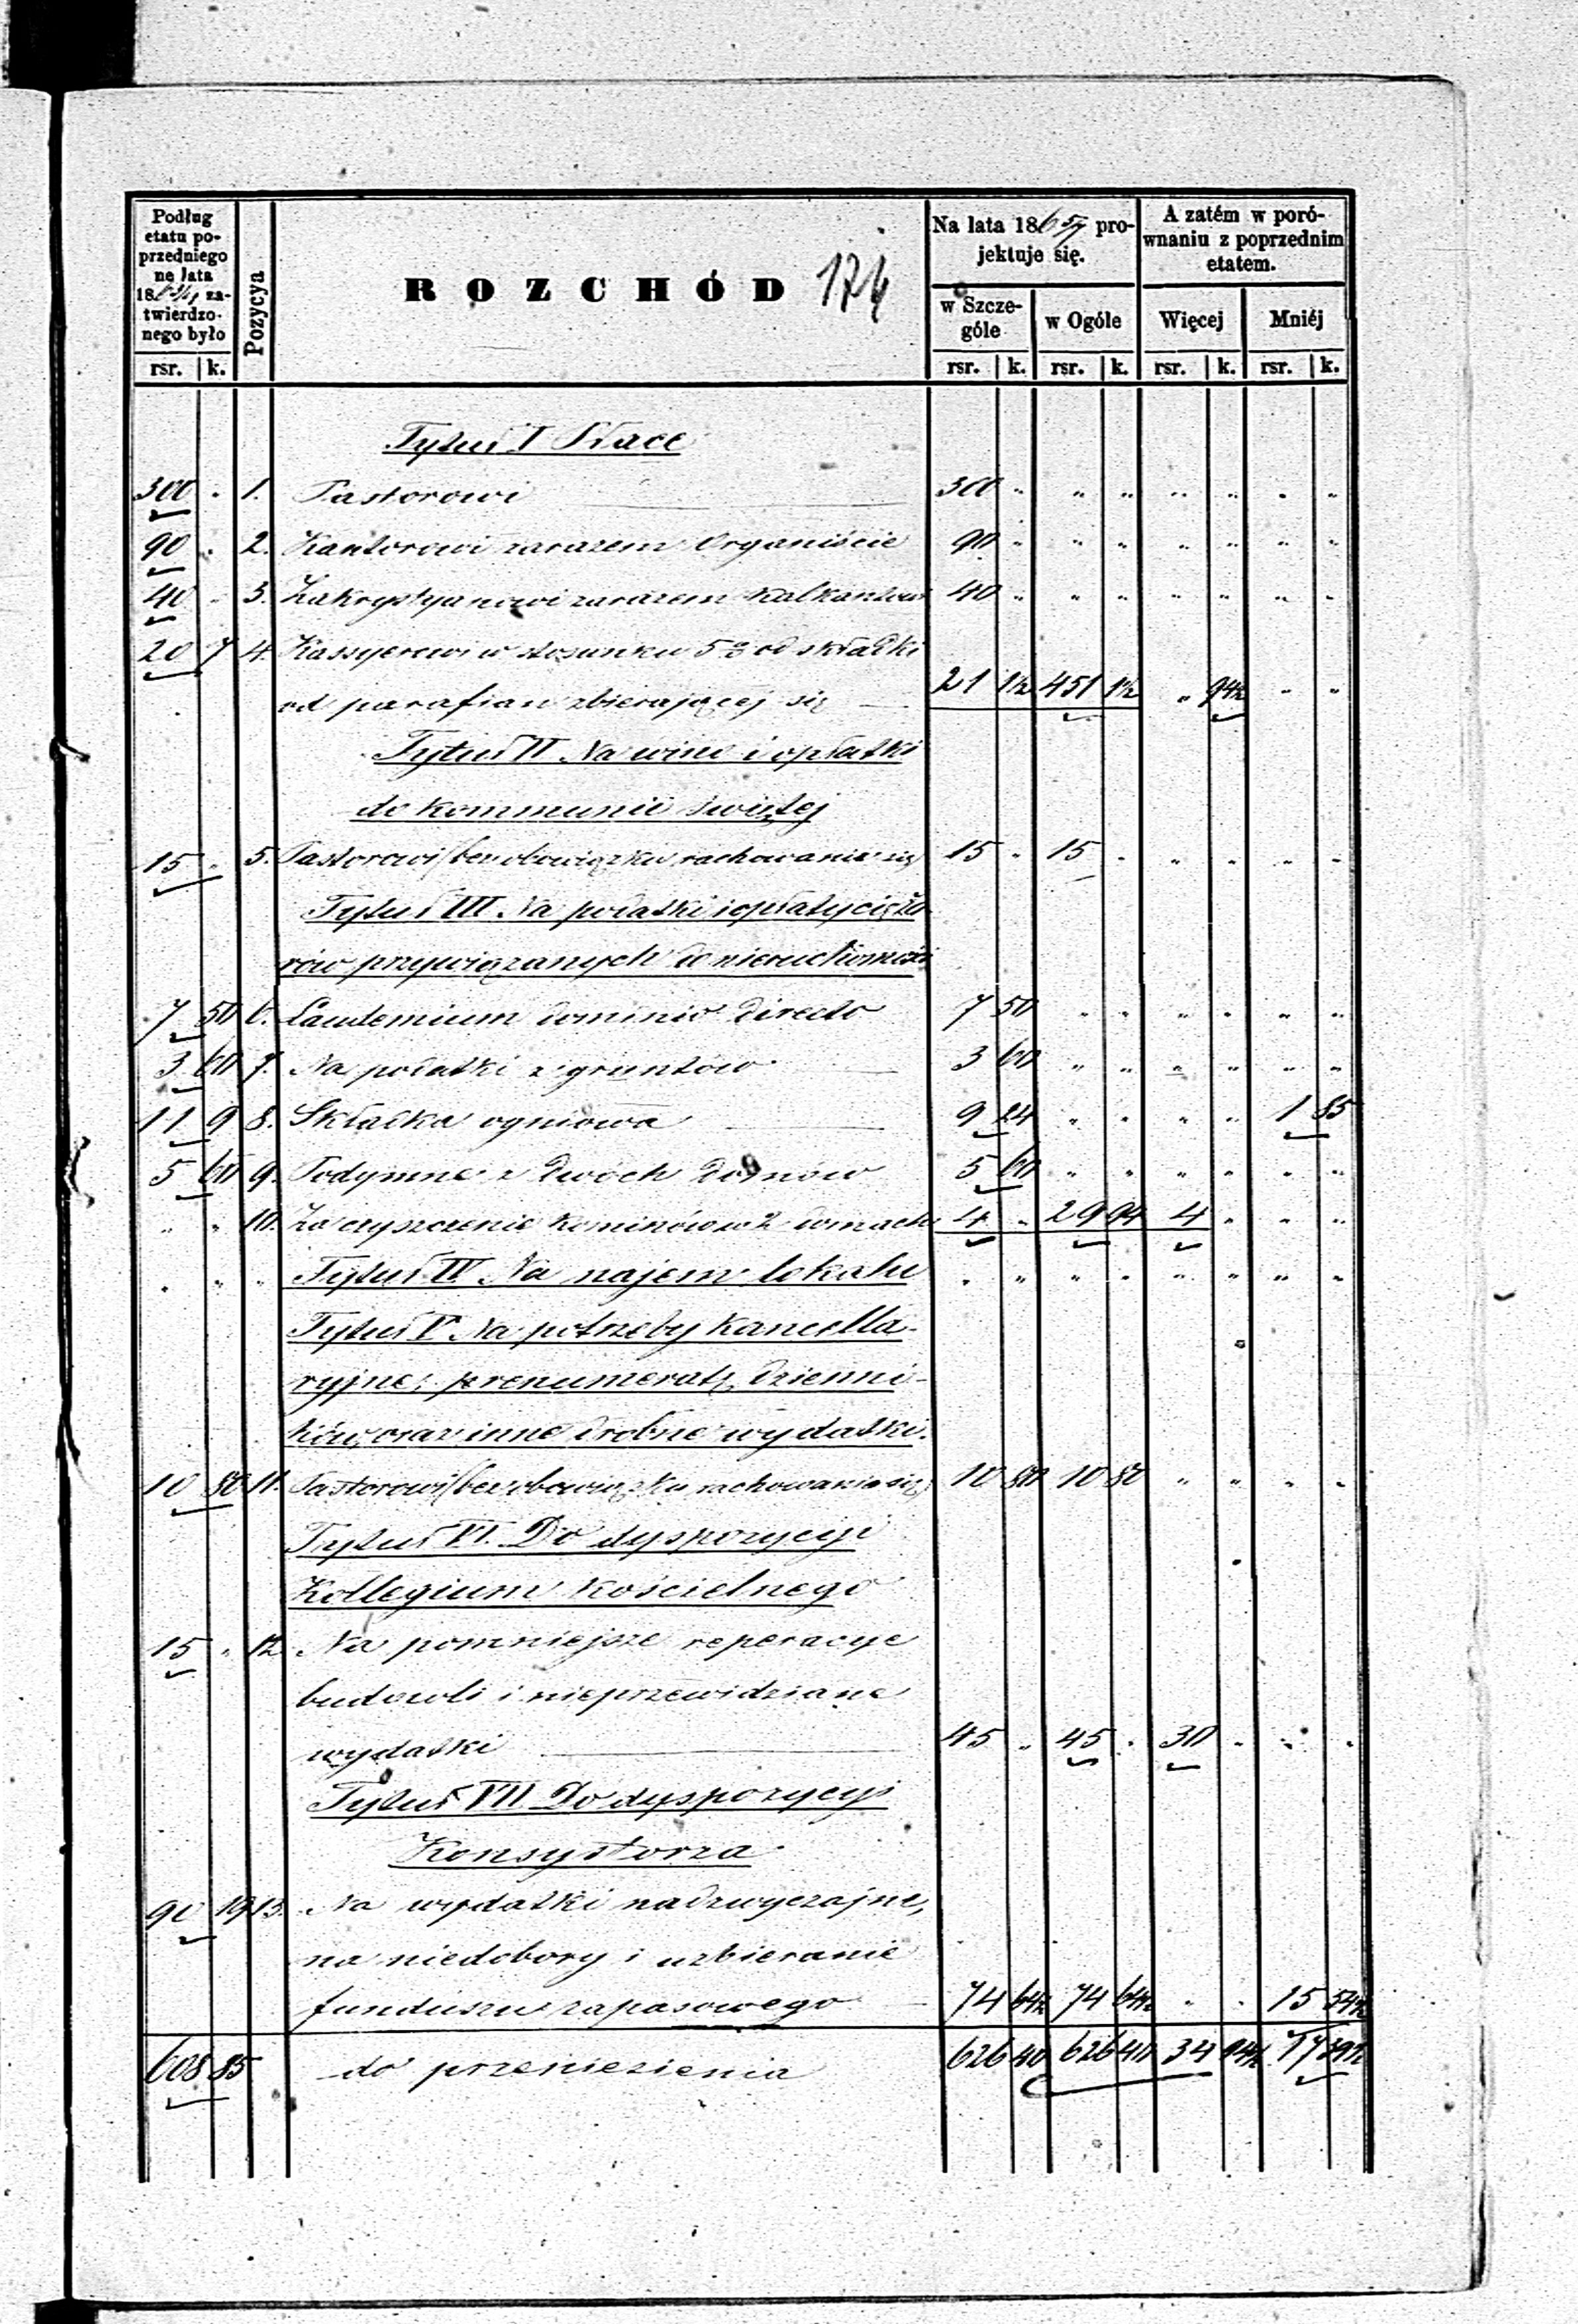 Podług
etatu po-
przedniego
na lata
18 za-
twierdzo-
nego było
Pozycya
ROZCHÓD 174
Na lata 186 5/7 pro-
jektuje się.
A zatém w poró-
wnaniu z poprzednim
etatem.
w Szcze-
góle
w Ogóle
Więcej
Mniéj
rsr. k. rsr. k. rsr. k. rsr. k. rsr. k.
Tytuł I Płace
300 " 1. Pastorowi 300 " " " " " " "
90 " 2. Kantorowi zarazem Organiście 90 " " " " " " "
40 " 3. Zakrystyanowi zarazem Kalkantowi 40 " " " " " " "
20 7 4. Kassyerowi w stosunku 5% od składki
od parafian zbierającej się 21 1½ 451 1½ " 94½ " "
Tytuł II Na wino i opłatki
do kommunii świętej
15 " 5. Pastorowi (bez obowiązku rachowania się) 15 " 15 " " " " "
Tytuł III Na podatki i opłaty cięża-
rów przywiązanych do nieruchomości
7 50 6. Laudemium dominio directo 7 50 " " " " " "
3 60 7. Na podatki z gruntów 3 60 " " " " " "
11 9 8. Składka ogniowa 9 24 " " " " 1 85
5 60 9. Podymne z dwóch domów 5 60 " " " " " "
" " 10. Za czyszczenie kominów w 2 domach 4 " 29 94 4 " " "
" " " Tytuł IV Na najem lokalu " " " " " " " "
Tytuł V Na potrzeby kancella-
ryjne, prenumeratę dzienni-
ków, oraz inne drobne wydatki.
10 80 11. Pastorowi (bez obowiązku rachowania się) 10 80 10 80 " " " "
Tytuł VI. Do dyspozycyi
Kollegium Kościelnego
15 " 12. Na pomniejsze reperacye
budowli i nieprzewidziane
wydatki 45 " 45 " 30 " " "
Tytuł VII Do dyspozycyi
Konsystorza
90 19 13. Na wydatki nadzwyczajne,
na niedobory i uzbieranie
funduszu zapasowego 74 64½ 74 64½ " " 15 54½
608 85 do przeniesienia 626 40 626 40 34 94½ 17 39½